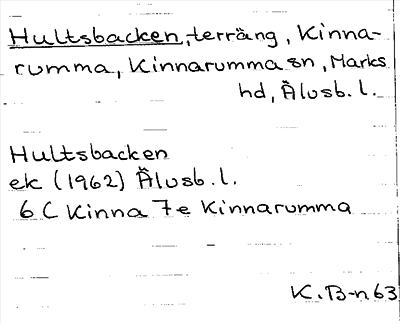 Hultsbacken, terräng, Kinna-
rumma, Kinnarumma sn, Marks
hd, Älvsb. l.
Hultsbacken
ek (1962) Älvsb. l.
6 C Kinna 7e Kinnarumma
K. B-n 63